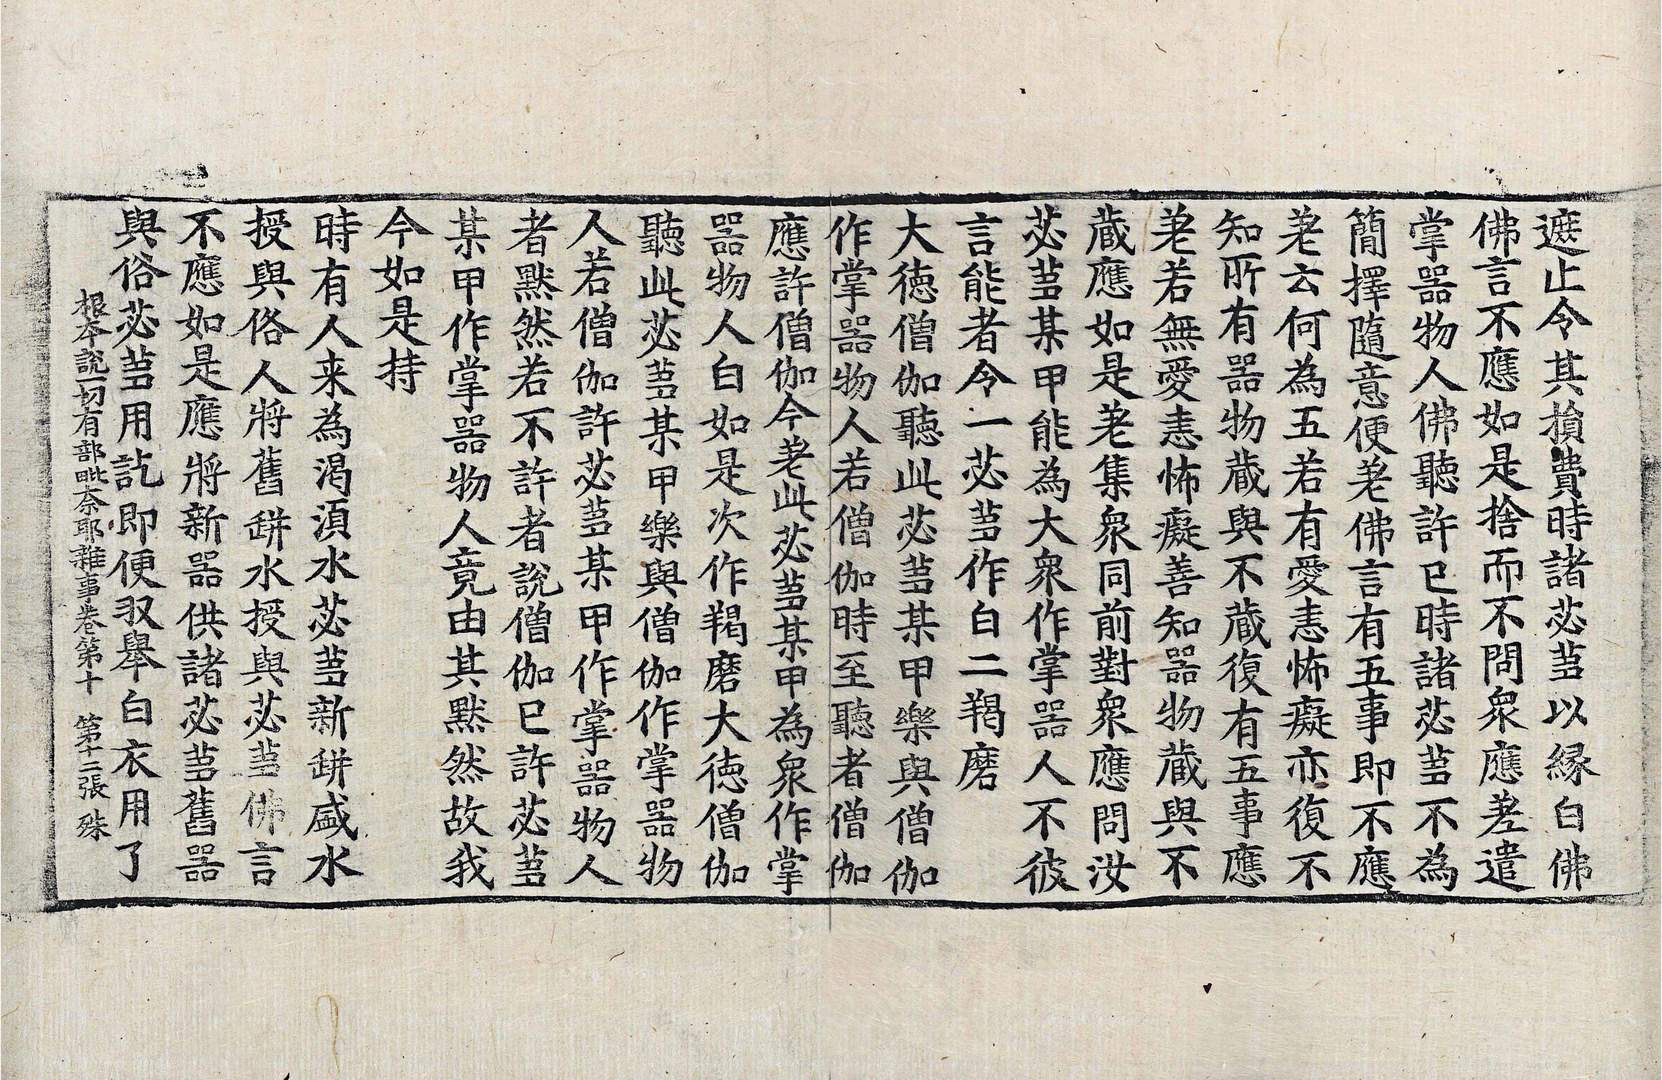 遮止令其損費時諸苾蒭以縁白佛
佛言不應如是捨而不問衆應差遣
掌器物人佛聽許已時諸苾蒭不為
簡擇隨意便差佛言有五事即不應
差云何為五若有愛恚怖癡亦復不
知所有器物蔵與不蔵復有五事應
差若無愛恚怖癡善知器物蔵與不
蔵應如是差集衆同前對衆應問汝
苾蒭某甲能為大衆作掌器人不彼
言能者令一苾蒭作白二羯磨
大徳僧伽聽此苾蒭某甲樂與僧伽
作掌器物人若僧伽時至聽者僧伽
應許僧伽今差此苾蒭某甲為衆作掌
器物人白如是次作羯磨大徳僧伽
聽此苾蒭某甲樂與僧伽作掌器物
人若僧伽許苾蒭某甲作掌器物人
者默然若不許者說僧伽已許苾蒭
某甲作掌器物人竟由其默然故我
今如是持
時有人来為渴須水苾蒭新缾盛水
授與俗人將舊缾水授與苾蒭佛言
不應如是應將新器供諸苾蒭舊器
與俗苾蒭用訖即便収舉白衣用了
根本說一切有部毗奈耶雜事卷第十 第十二張 殊